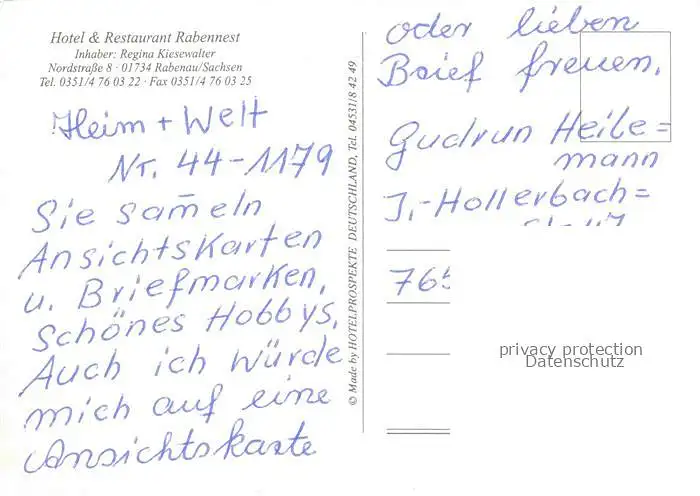 Hotel & Restaurant Rabennest
Inhaber: Regina Kiesewalter
Nordstraße 8 · 01734 Rabenau/Sachsen
Tel. 0351/4 76 03 22 · Fax 0351/4 76 03 25
Heim + Welt
Nr. 44-1179
Sie sam̄eln
Ansichtskarten
u. Briefmarken,
schönes Hobbys,
Auch ich würde
mich auf eine
Ansichtskarte
© Made by HOTELPROSPEKTE DEUTSCHLAND, Tel. 04531/8 42 49
oder lieben
Brief freuen.
Gudrun Heile=
mann
J.-Hollerbach=
765
privacy protection
Datenschutz